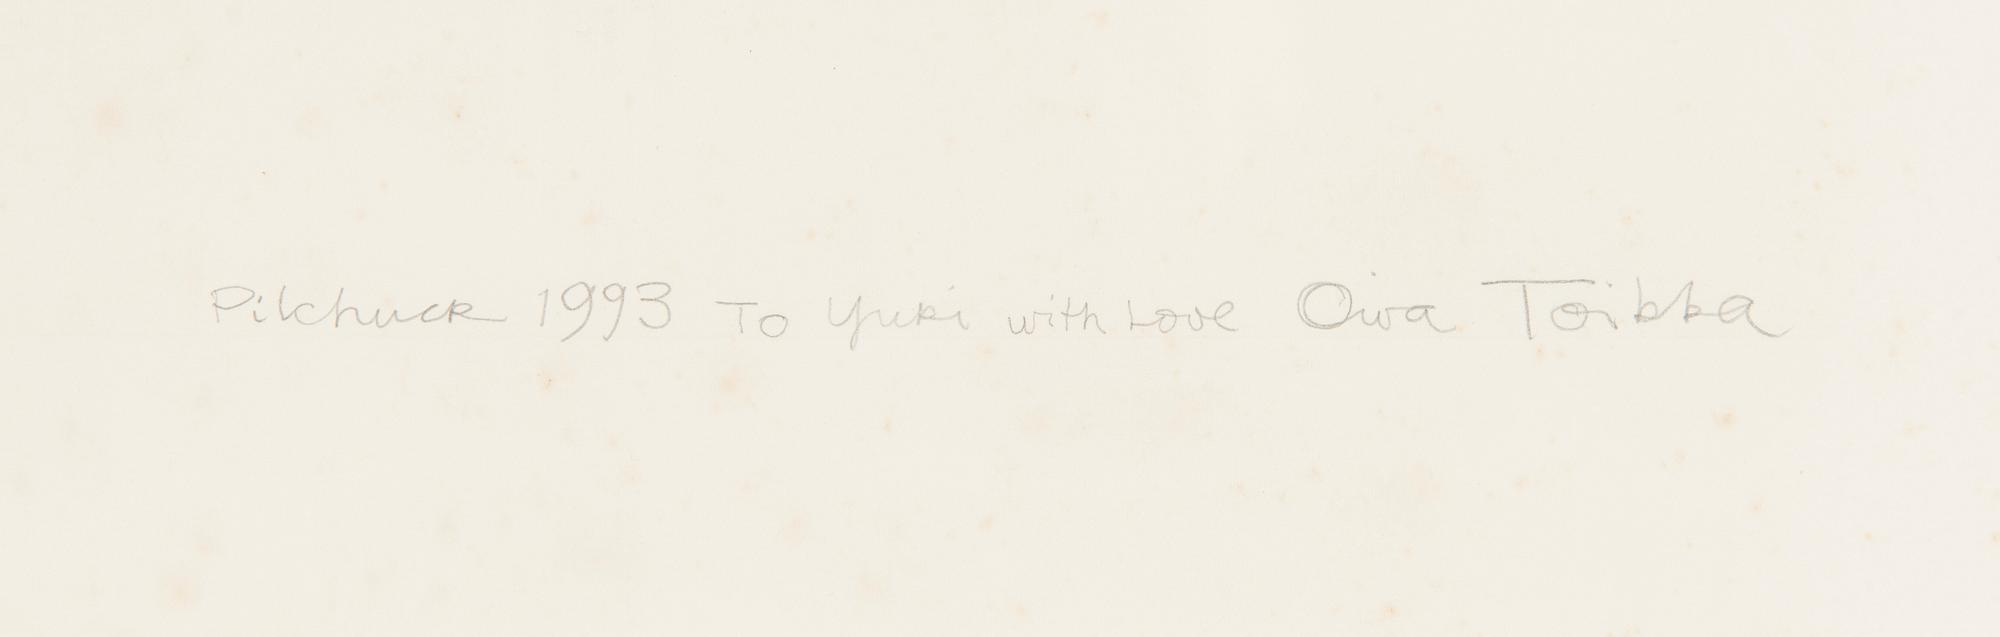 Pilchuck 1993 To Yuki with Love Oiva Toikka